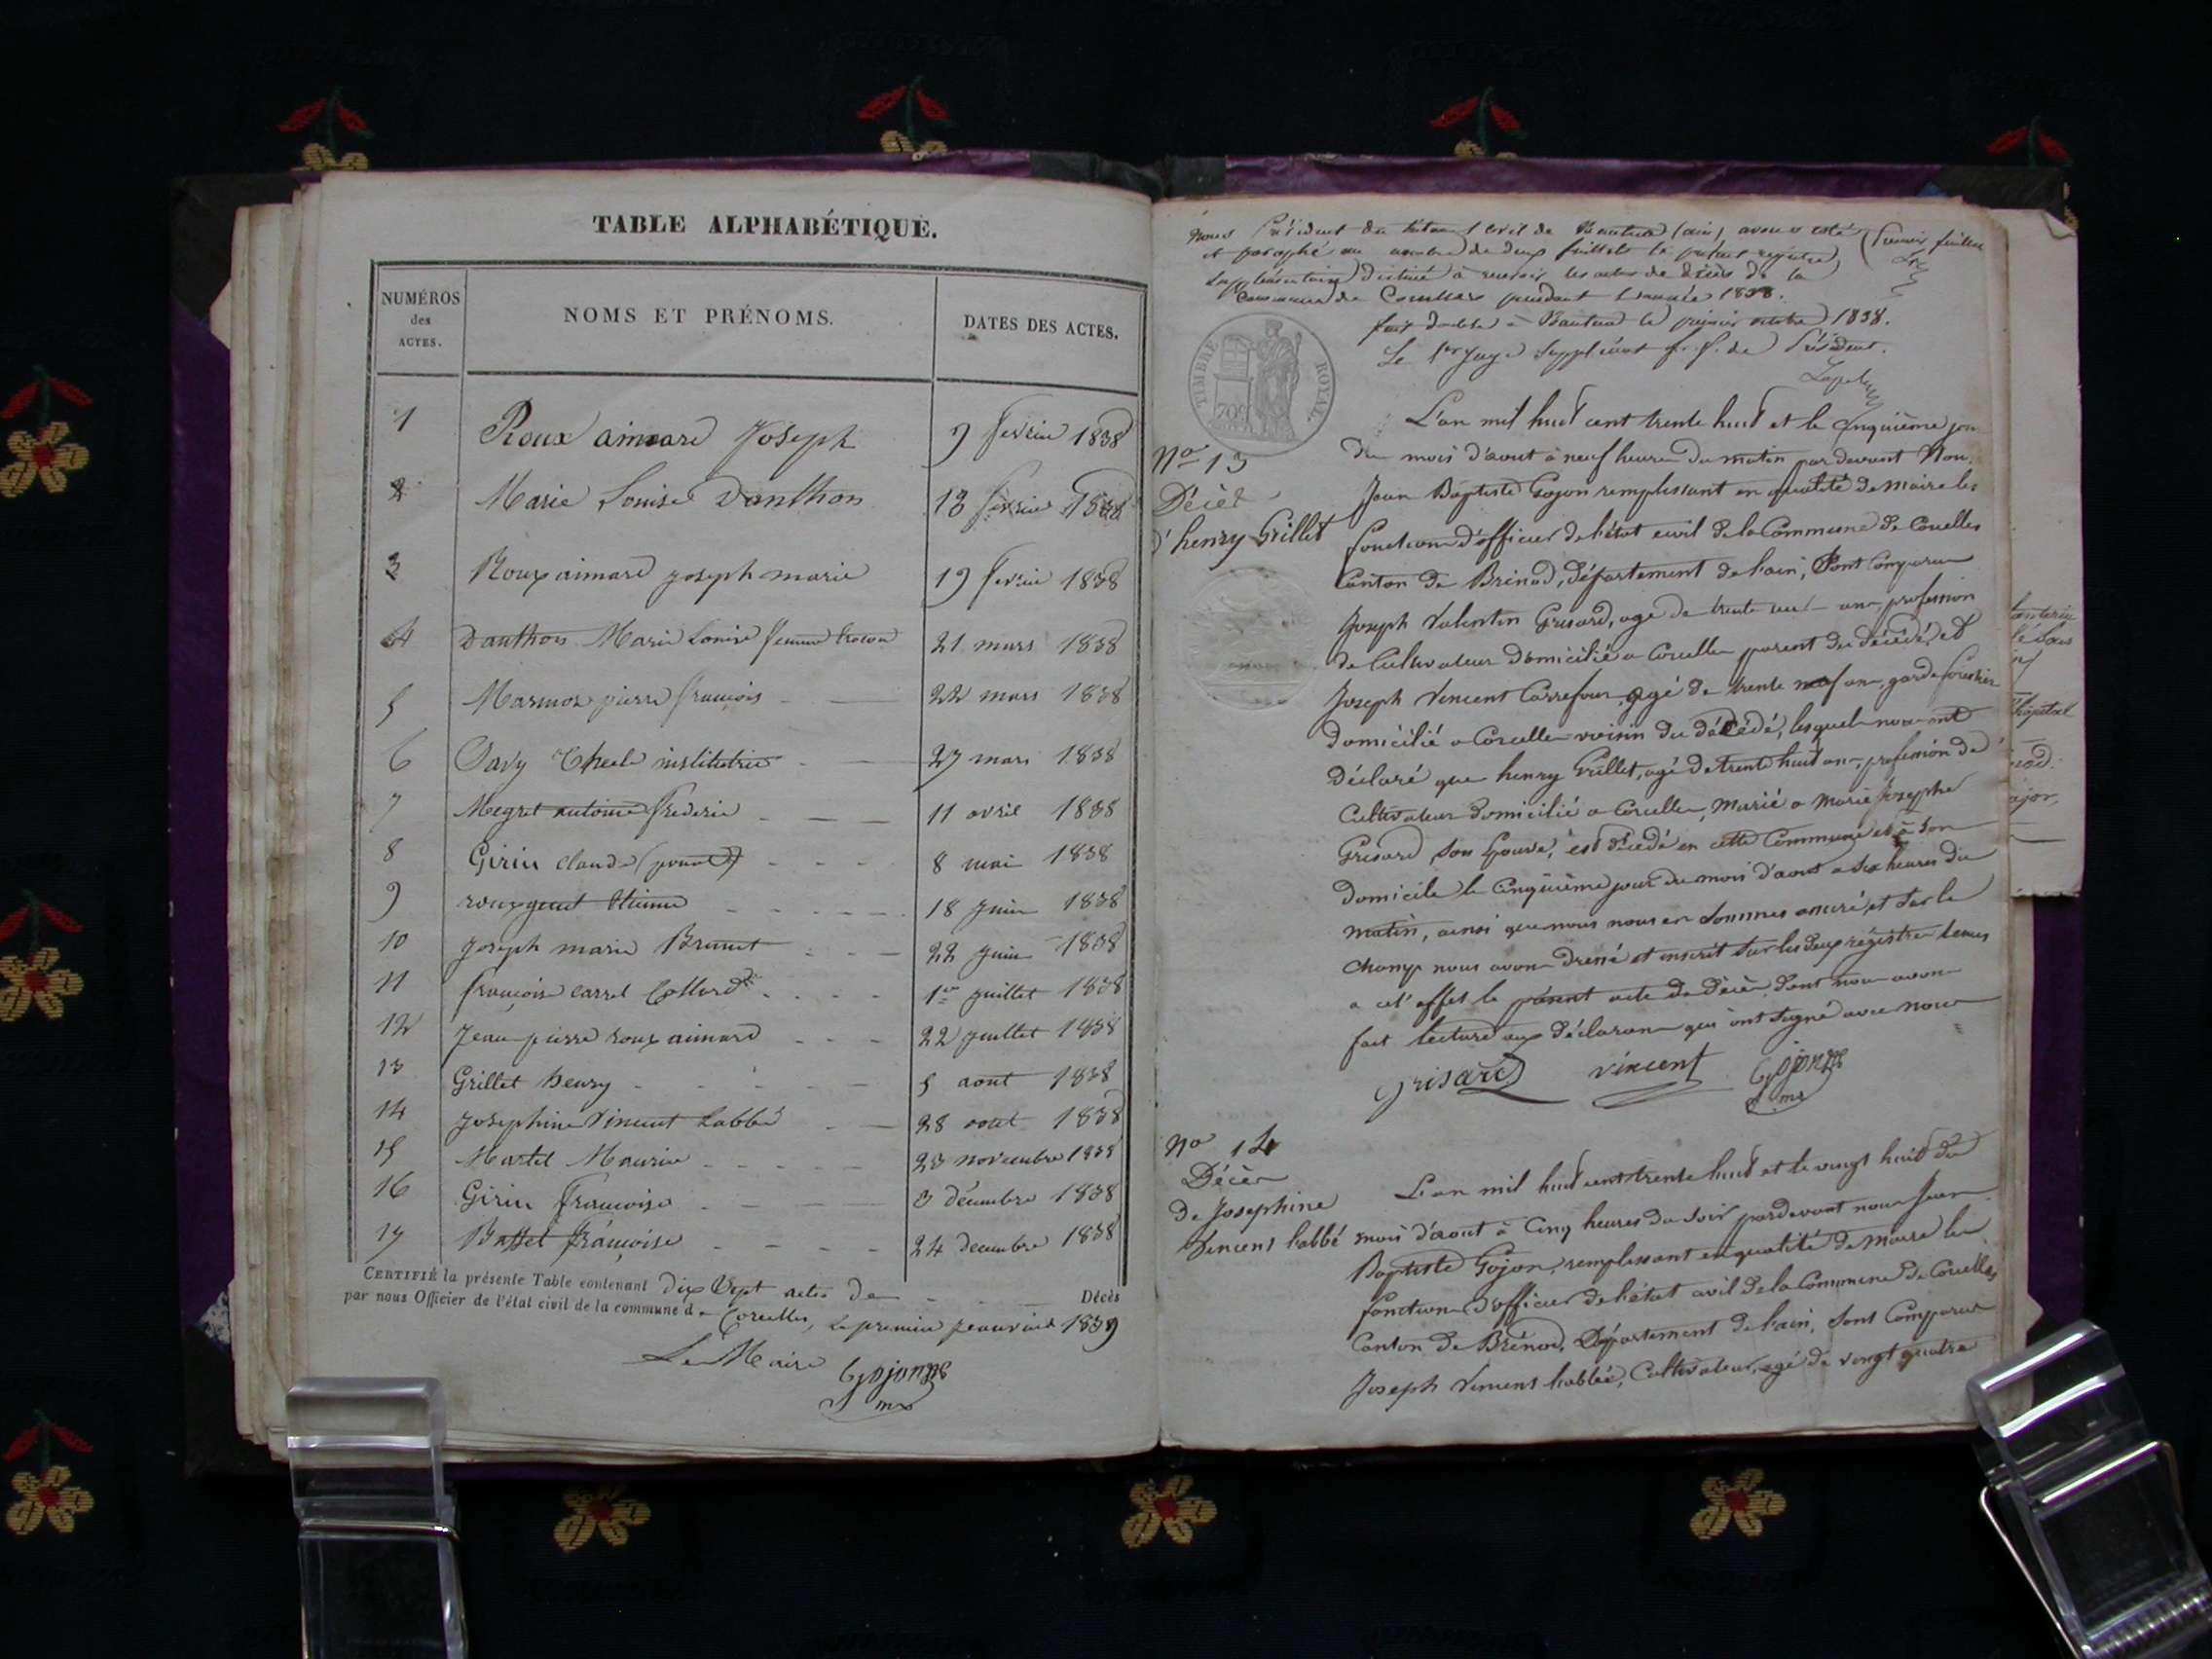 TABLE ALPHABÉTIQUE.
NUMÉROS
des
ACTES.
NOMS ET PRÉNOMS.
DATES DES ACTES.
1 Roux aimard Joseph 9 fevrier 1838
2 Marie Louise Danthon 13 fevrier 1838
3 Roux aimard joseph marie 19 fevrier 1838
4 Danthon Marie Louise femme 21 mars 1838
5 Marmor pierre françois 22 mars 1838
6 Savy institutrice 27 mars 1838
7 Megret antoine frederic 11 avril 1838
8 Girin claude 8 mai 1838
9 roux 18 Juin 1838
10 Joseph marie Brunet 22 juin 1838
11 françois carrel 1er juillet 1838
12 Jean pierre roux aimard 22 juillet 1838
13 Grillet henry 5 aout 1838
14 Josephine Vincent Labbé 28 aout 1838
15 Martel Maurice 23 novembre 1838
16 Girin françoise 3 décembre 1838
17 Baffet françoise 24 decembre 1838
CERTIFIÉ la présente Table contenant dix Sept actes de Décès
par nous Officier de l'état civil de la commune de Corcelles, Le premier 1839
Le Maire Gojon
me
Nous Président du civil de Nantua (ain) avons coté (Premier feuillet
et paraphé au nombre de deux feuillets le présent registre
Supplémentaire destiné à recevoir les actes de décès de la
Commune de Corcelles pendant l'année 1838.
fait double à Nantua le premier octobre 1838.
Le 1er Juge Suppléant f.f. de Président.
TIMBRE ROYAL.
70c
L'an mil huit cent trente huit et le cinquième jour
No 13
Décès
d'henry Grillet
du mois d'aout à neuf heures du matin par devant Nous
Jean Baptiste Gojon remplissant en qualité de maire les
fonctions d'officier de l'état civil de la Commune de Corcelles
Canton de Brénod, département de l'ain, Sont Comparus
Joseph Valentin Grisard, agé de trente ans, profession
de Cultivateur domicilié a Corcelles parent du décédé, et
Joseph Vincent Carrefour, agé de trente neuf ans, garde forestier
domicilié a Corcelles voisin du décédé, lesquels nous ont
déclaré que henry Grillet, agé de trente huit ans, profession de
Cultivateur domicilié a Corcelles, Marié a Marie Josephe
Grisard Son Epouse, est décédé en cette Commune et à Son
domicile le Cinquième jour du mois d'aout a Six heures du
matin, ainsi que nous nous en Sommes assuré, et Sur le
champ nous avons dressé et inscrit Sur les deux régistres tenus
a cet effet le présent acte de décès dont nous avons
fait lecture aux déclarans qui ont Signé avec nous
grisard vincent Gojon
me
No 14
Décès
de Josephine
Vincent labbé
L'an mil huit cent trente huit et le vingt huit du
mois d'aout à Cinq heures du Soir pardevant nous Jean
Baptiste Gojon, remplissant en qualité de Maire les
fonctions d'officier de l'état civil de la Commune de Corcelles
Canton de Brénod, Département de l'ain, Sont Comparus
Joseph Vincent labbé, Cultivateur, agé de vingt quatre